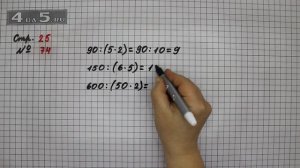 4DA5.RU
Стр. 25
№ 74
90:(5·2)=90:10=9
150:(6·5)=1
600:(50·2)=